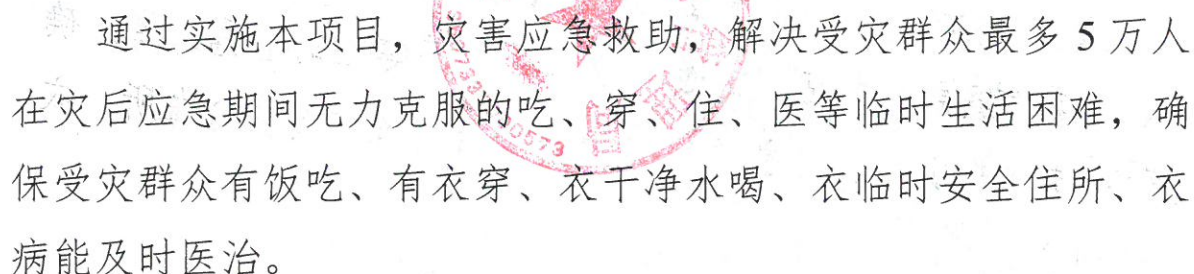 通过实施本项目，灾害应急救助，解决受灾群众最多 5 万人
在灾后应急期间无力克服的吃、穿、住、医等临时生活困难，确
保受灾群众有饭吃、有衣穿、衣干净水喝、衣临时安全住所、衣
病能及时医治。